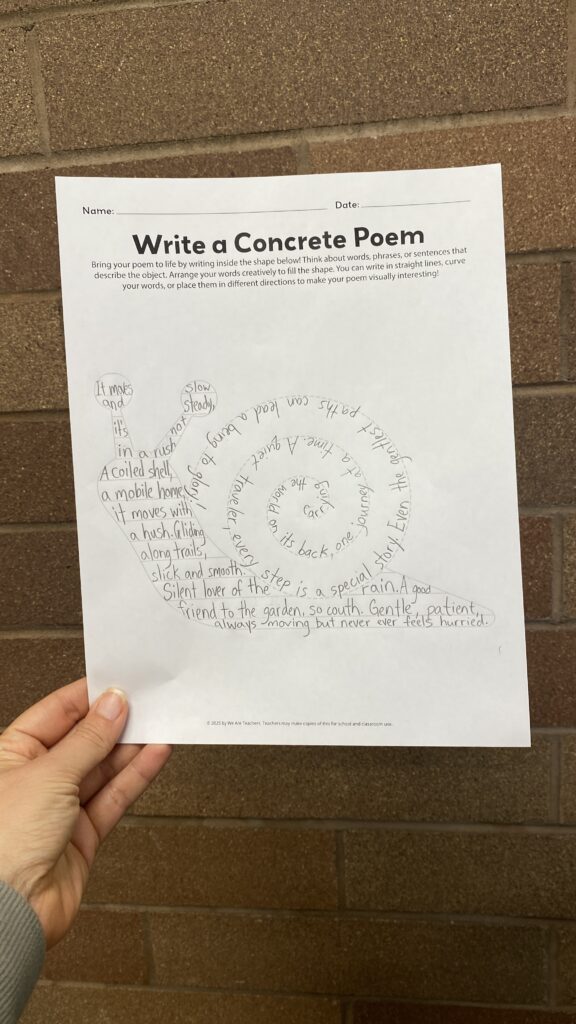 Name:
Date:
Write a Concrete Poem
Bring your poem to life by writing inside the shape below! Think about words, phrases, or sentences that
describe the object. Arrange your words creatively to fill the shape. You can write in straight lines, curve
your words, or place them in different directions to make your poem visually interesting!
It moves
and
it's
slow
steady,
not
in a rush
A coiled shell,
a mobile home,
it moves with
a hush. Gliding
along trails,
slick and smooth.
Silent lover of the rain. A good
friend to the garden, so couth. Gentle, patient,
always moving but never ever feels hurried.
Carrying the world on its back, one journey at a time. A quiet traveler, every step is a special story. Even the gentlest paths can lead a being to glory!
© 2025 by We Are Teachers. Teachers may make copies of this for school and classroom use.